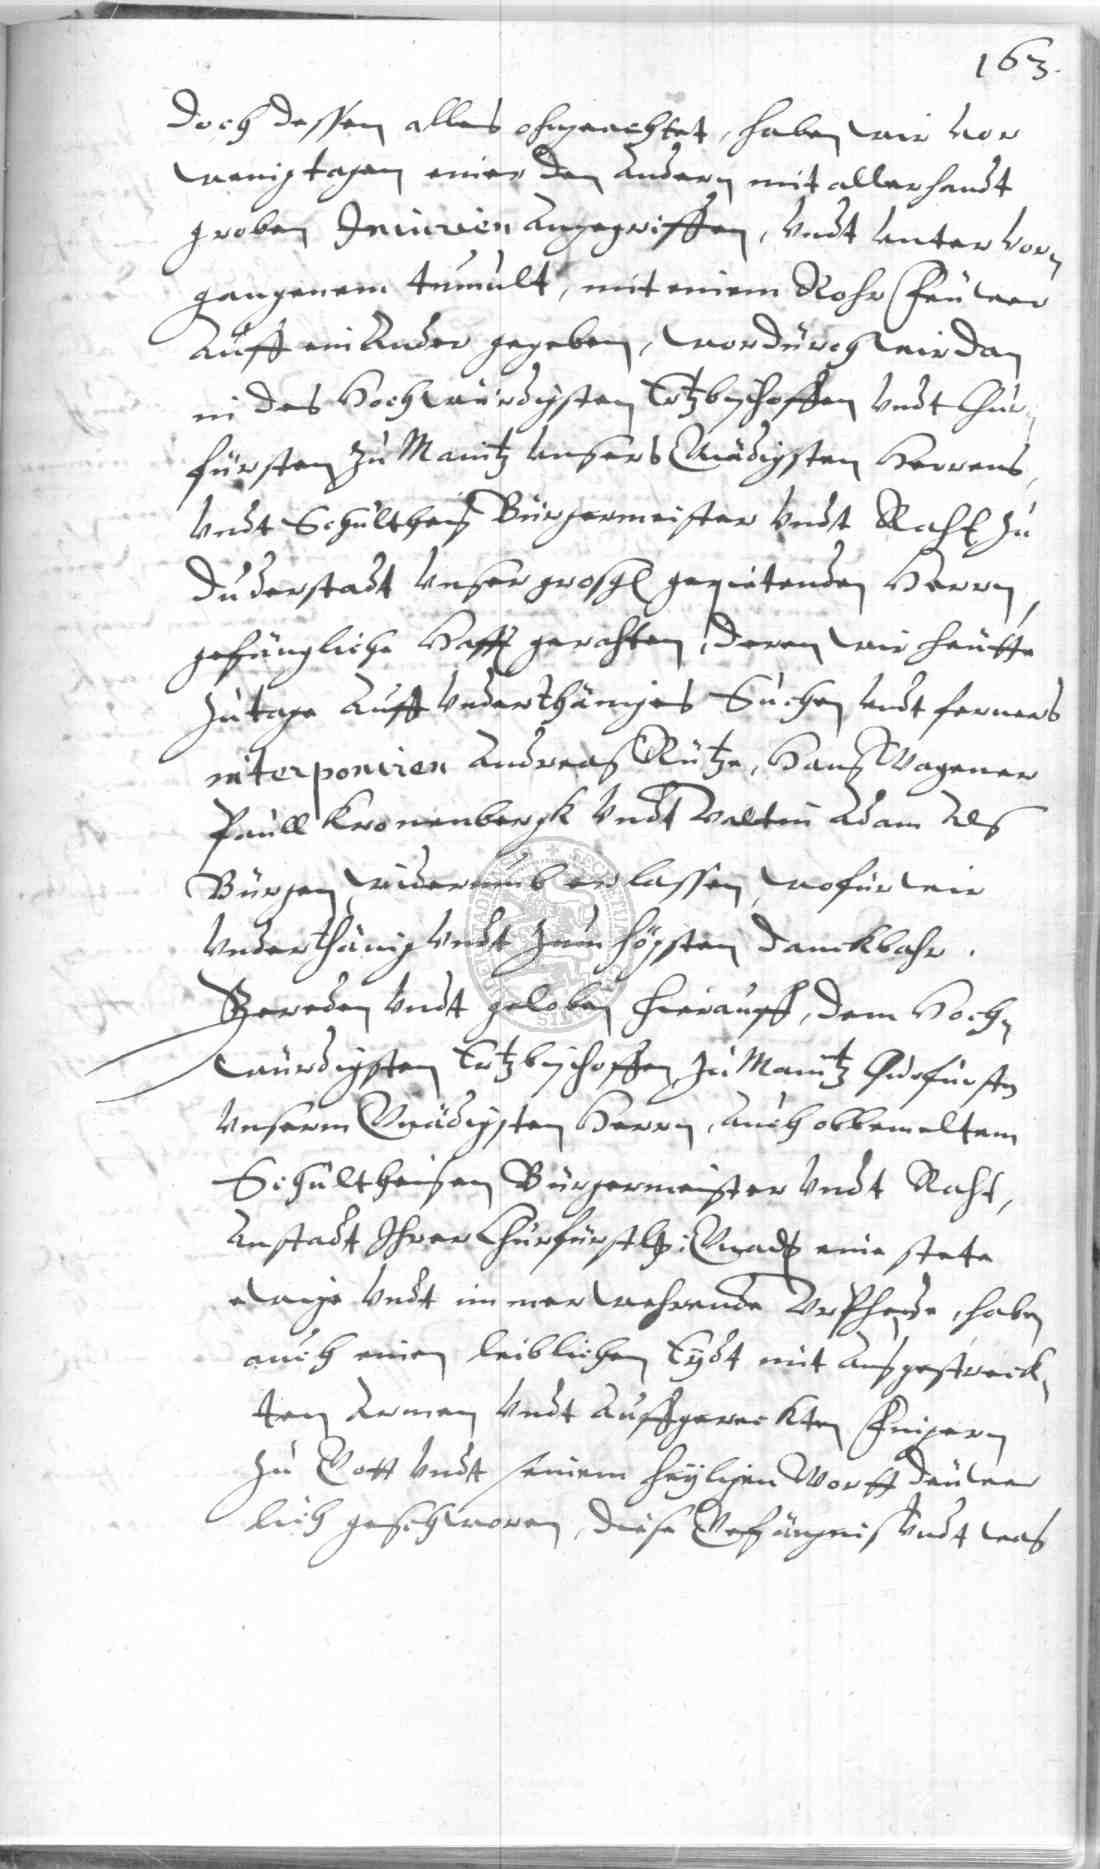 163.
doch dessen alles ohngeachtet, haben wir vor
wenig tagen einer den andern mit allerhandt
groben Iniurien angegriffen, vndt vnter vor-
gangenem tumult, mit einem Rohr Feuwer
auff ein ander gegeben, wordurch wir dan
in des Hochwürdigsten Ertzbischoffen vndt Chur-
fürsten zu Maintz vnsers Gnädigsten Herrens,
vndt Schultheis Bürgermeister vndt Raht zu
Duderstadt vnser grosg. gepietenden Herrn,
gefängliche Hafft gerahten, deren wir heutte
zu tage auff vnderthäniges Suchen vndt ferners
interponiren Andreas Rütze, Hans Wagener
Paull Kronenbergk vndt Valtin Adam als
Bürgen widerumb erlassen, wofür wir
vnderthänig vndt zum högsten danckbahr.
Gereden vndt geloben hierauff, dem Hoch-
würdigsten Ertzbischoffen zu Maintz Churfürsten
vnserm Gnädigsten Herrn, auch obbemeltem
Schultheisen Bürgermeister vndt Raht,
anstadt Ihrer Churfürstl: Gnad. eine stete
ewige vndt immerwehrende Vrphede, haben
auch einen leiblichen Eydt mit ausgestreck-
ten Armen vndt auffgereckten Fingern
zu Gott vndt seinem heyligen Wortt deuwer
lich geschworen, diese Gefängnis vndt was